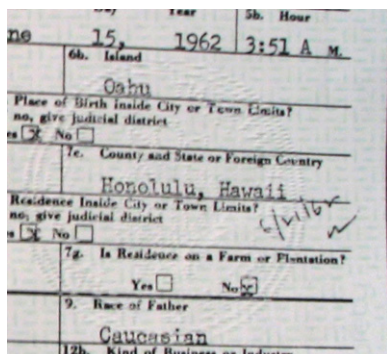 Year 5b. Hour
ne 15, 1962 3:51 A M.
6b. Island
Oahu
Place of Birth Inside City or Town Limits?
no, give judicial district
No
7c. County and State or Foreign Country
Honolulu, Hawaii
Residence Inside City or Town Limits?
no, give judicial district
No
7g. Is Residence on a Farm or Plantation?
Yes No
9. Race of Father
Caucasian
12b. Kind of Business or Industry